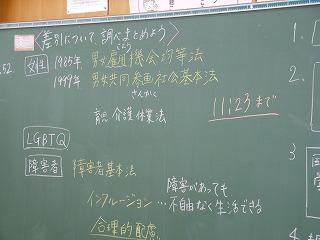 〈差別について調べまとめよう〉
P.52
女性
1985年 男女雇用機会均等法
こよう
1999年 男女共同参画社会基本法
さんかく
育児・介護休業法
11:23まで
LGBTQ
障害者
障害者基本法
インクルージョン…障害があっても
不自由なく生活できる
合理的配慮
1.
2.
3
4